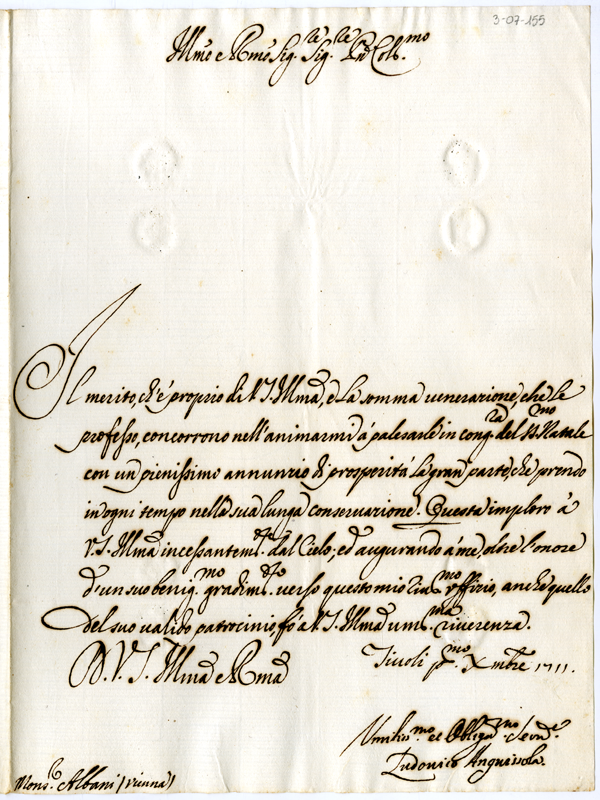 3-07-155
Illmo e Rmo Sig. Sig.re Pne Coll.mo
Il merito, ch'è proprio di V.S. Illma, e la somma venerazione, che le
professo, concorrono nell'animarmi à palesarle in cong.ra del SS.mo Natale
con un pienissimo annunzio di prosperità la gran parte, che prendo
in ogni tempo nella sua lunga conservazione. Questa imploro à
V.S. Illma incessantem.te dal Cielo; ed augurando à me, oltre l'onore
d'un suo benig.mo gradim.to verso questo mio um.mo uffizio, anche quello
del suo valido patrocinio, fò a V.S. Illma um.ma riverenza.
D. V. S. Illma e Rma
Tivoli p.mo Xmbre 1711.
Umiliss.mo et Obligat.mo Serv.e
Ludovico Anguissola.
Mons.r Albani (Vienna)